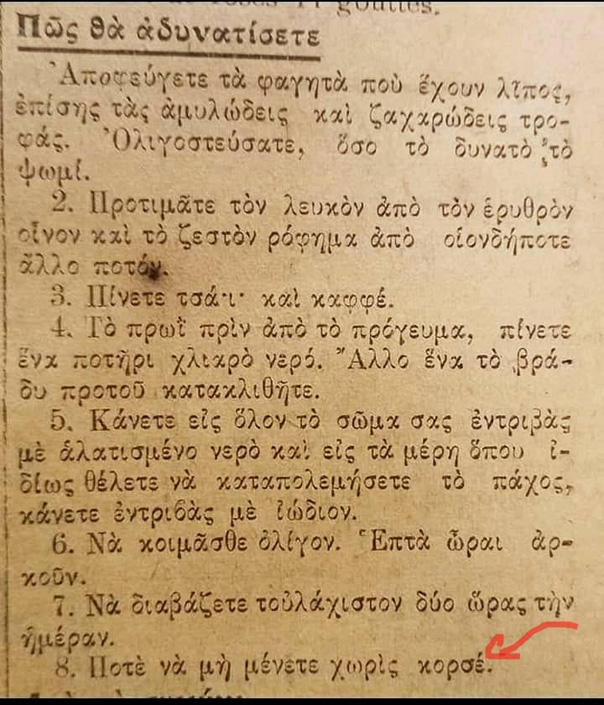 gouttes.
Πῶς θὰ ἀδυνατίσετε
Ἀποφεύγετε τὰ φαγητὰ ποὺ ἔχουν λῖπος,
ἐπίσης τὰς ἀμυλώδεις καὶ ζαχαρώδεις τρο-
φάς. Ὀλιγοστεύσατε, ὅσο τὸ δυνατὸ τὸ
ψωμί.
2. Προτιμᾶτε τὸν λευκὸν ἀπὸ τὸν ἐρυθρὸν
οἶνον καὶ τὸ ζεστὸν ρόφημα ἀπὸ οἱονδήποτε
ἄλλο ποτόν.
3. Πίνετε τσάϊ καὶ καφφέ.
4. Τὸ πρωῒ πρὶν ἀπὸ τὸ πρόγευμα, πίνετε
ἕνα ποτῆρι χλιαρὸ νερό. Ἄλλο ἕνα τὸ βρά-
δυ προτοῦ κατακλιθῆτε.
5. Κάνετε εἰς ὅλον τὸ σῶμα σας ἐντριβὰς
μὲ ἁλατισμένο νερὸ καὶ εἰς τὰ μέρη ὅπου ἰ-
δίως θέλετε νὰ καταπολεμήσετε τὸ πάχος,
κάνετε ἐντριβὰς μὲ ἰώδιον.
6. Νὰ κοιμᾶσθε ὀλίγον. Ἑπτὰ ὧραι ἀρ-
κοῦν.
7. Νὰ διαβάζετε τοὐλάχιστον δύο ὥρας τὴν
ἡμέραν.
8. Ποτὲ νὰ μὴ μένετε χωρὶς κορσέ.